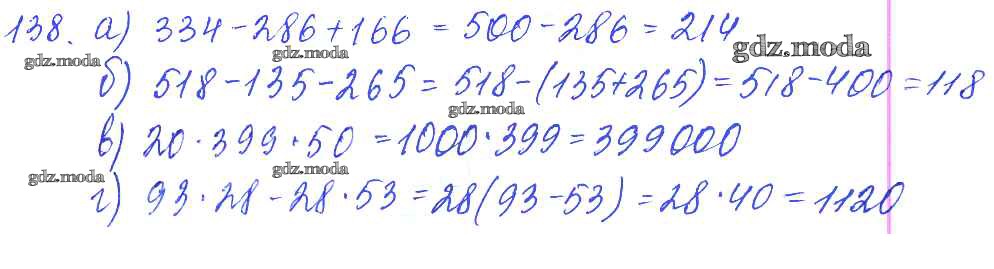 138. а) 334 - 286 + 166 = 500 - 286 = 214
gdz.moda gdz.moda gdz.moda
б) 518 - 135 - 265 = 518 - (135 + 265) = 518 - 400 = 118
gdz.moda
в) 20 · 399 · 50 = 1000 · 399 = 399 000
gdz.moda gdz.moda
г) 93 · 28 - 28 · 53 = 28(93 - 53) = 28 · 40 = 1120